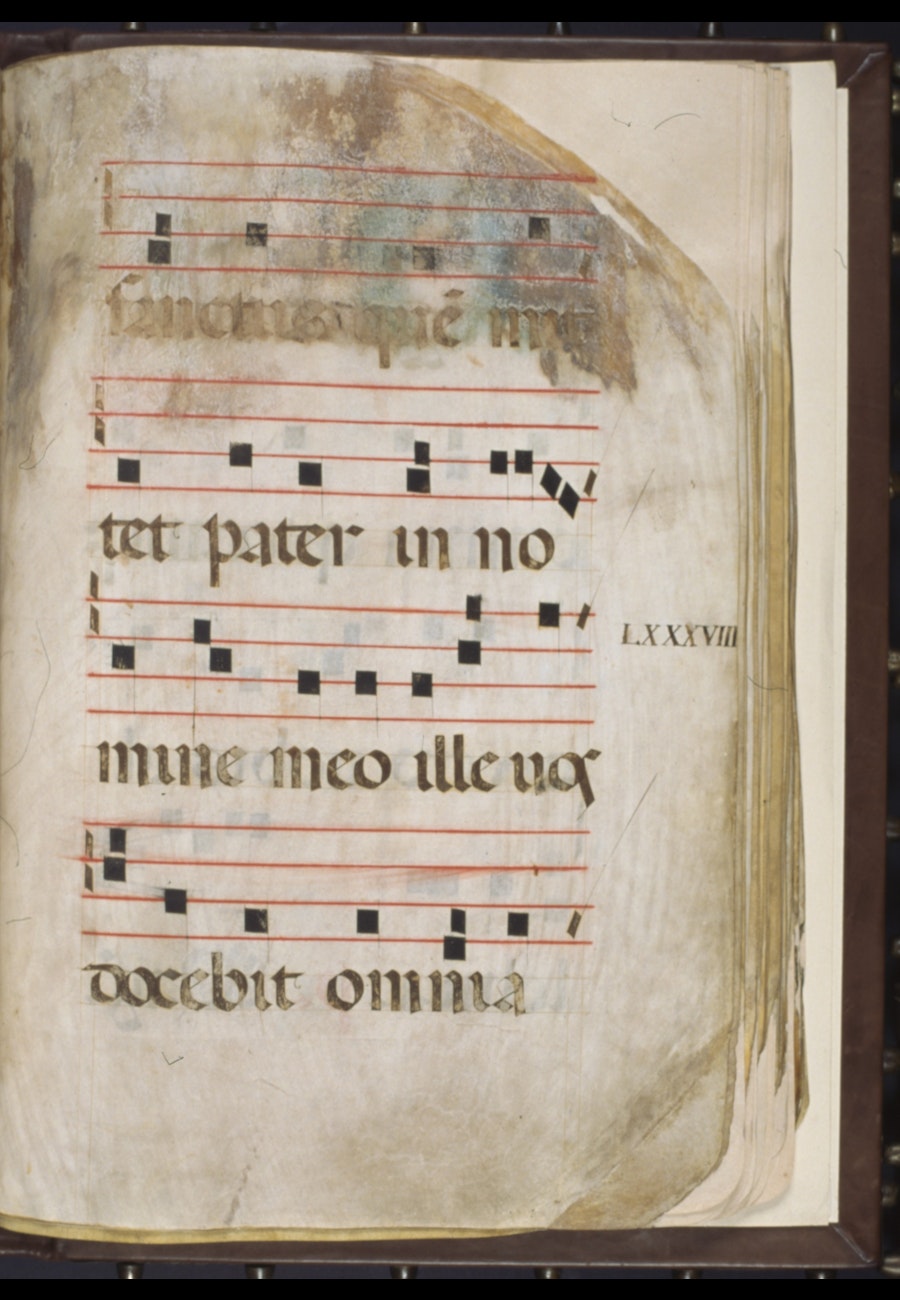 sanctus quē mit
tet pater in no
mine meo ille vos
LXXXVIII
docebit omnia